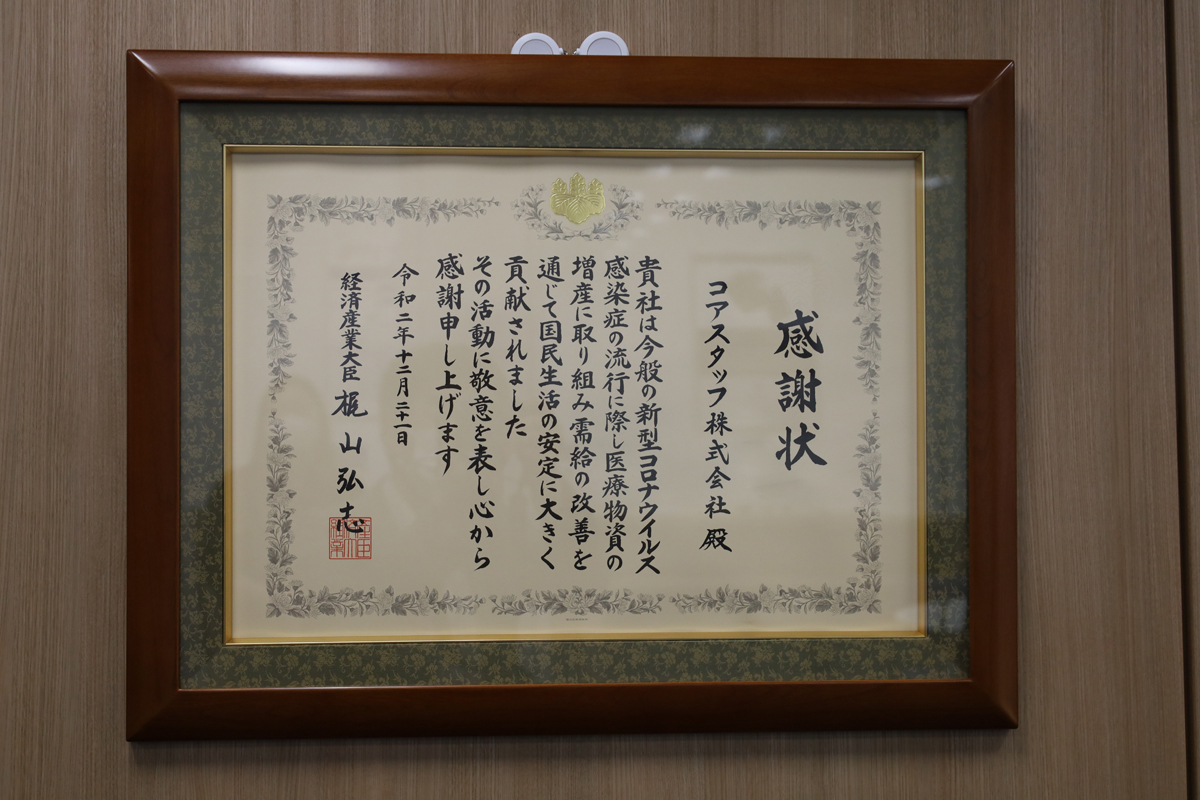 感謝状
コアスタッフ株式会社殿
貴社は今般の新型コロナウイルス
感染症の流行に際し医療物資の
増産に取り組み需給の改善を
通じて国民生活の安定に大きく
貢献されました
その活動に敬意を表し心から
感謝申し上げます
令和二年十二月二十一日
経済産業大臣 梶山弘志